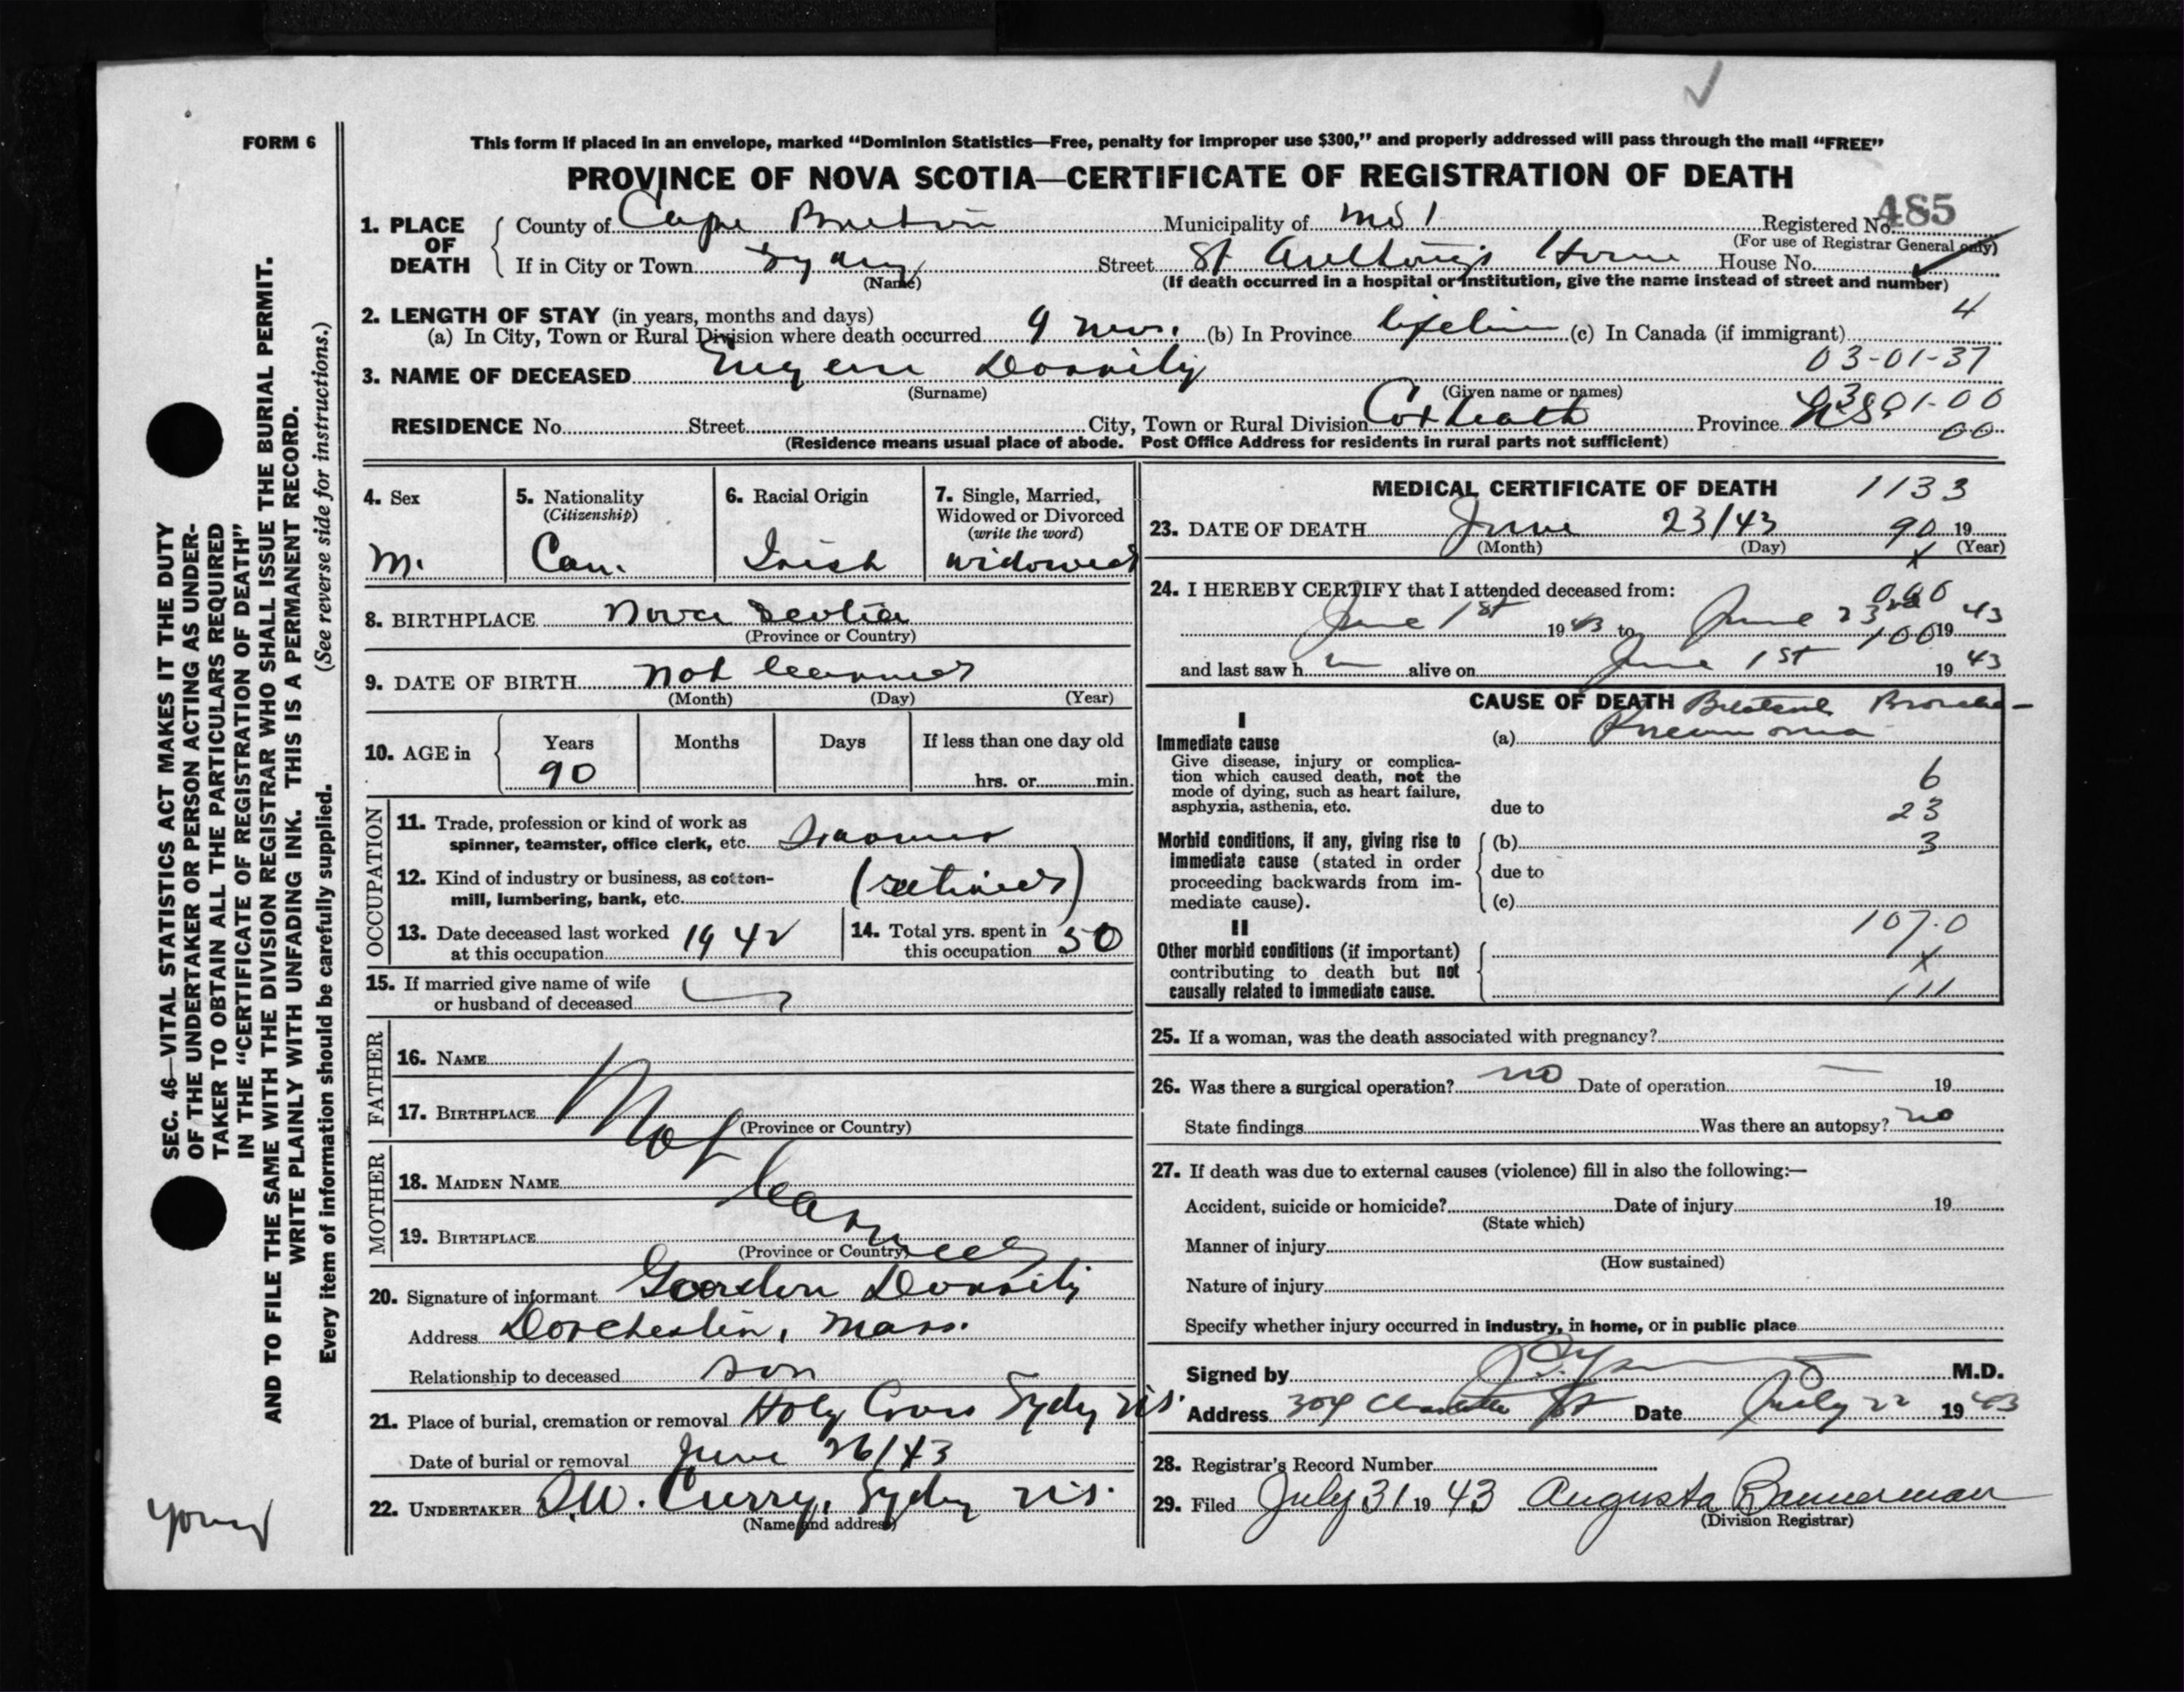 FORM 6
This form if placed in an envelope, marked “Dominion Statistics—Free, penalty for improper use $300,” and properly addressed will pass through the mail “FREE”
PROVINCE OF NOVA SCOTIA—CERTIFICATE OF REGISTRATION OF DEATH
1. PLACE OF DEATH
County of Cape Breton Municipality of No 1 Registered No. 485
(For use of Registrar General only)
If in City or Town Sydney Street St Anthony's Home House No.
(Name) (If death occurred in a hospital or institution, give the name instead of street and number)
4
2. LENGTH OF STAY (in years, months and days)
(a) In City, Town or Rural Division where death occurred 9 mos. (b) In Province lifetime (c) In Canada (if immigrant)
03-01-37
3. NAME OF DECEASED Eugene
(Surname) (Given name or names)
RESIDENCE No. Street City, Town or Rural Division Coxheath Province N.S. 00
(Residence means usual place of abode. Post Office Address for residents in rural parts not sufficient)
4. Sex
M.
5. Nationality
(Citizenship)
Can.
6. Racial Origin
Irish
7. Single, Married,
Widowed or Divorced
(write the word)
widowed
8. BIRTHPLACE Nova Scotia
(Province or Country)
9. DATE OF BIRTH not learned
(Month) (Day) (Year)
10. AGE in
Years Months Days If less than one day old
90 hrs. or min.
OCCUPATION
11. Trade, profession or kind of work as
spinner, teamster, office clerk, etc.
12. Kind of industry or business, as cotton-
mill, lumbering, bank, etc. (retired)
13. Date deceased last worked
at this occupation 1942
14. Total yrs. spent in
this occupation 50
15. If married give name of wife
or husband of deceased
FATHER
16. NAME
17. BIRTHPLACE
(Province or Country)
Not learned
MOTHER
18. MAIDEN NAME
19. BIRTHPLACE
(Province or Country)
20. Signature of informant Gordon
Address Dorchester, Mass.
Relationship to deceased son
21. Place of burial, cremation or removal Holy Cross Sydney N.S.
Date of burial or removal June 26/43
22. UNDERTAKER D.W. Curry, Sydney N.S.
(Name and address)
MEDICAL CERTIFICATE OF DEATH 1133
23. DATE OF DEATH June 23/43 90 19
(Month) (Day) x (Year)
24. I HEREBY CERTIFY that I attended deceased from:
June 1st 1943 to June 23rd 1943
100
and last saw h alive on June 1st 1943
CAUSE OF DEATH Bilateral Broncho-
I
Immediate cause (a) Pneumonia
Give disease, injury or complica-
tion which caused death, not the
mode of dying, such as heart failure,
asphyxia, asthenia, etc.
due to
6
23
3
Morbid conditions, if any, giving rise to
immediate cause (stated in order
proceeding backwards from im-
mediate cause).
(b)
due to
(c)
107.0
II
Other morbid conditions (if important)
contributing to death but not
causally related to immediate cause.
x
111
25. If a woman, was the death associated with pregnancy?
26. Was there a surgical operation? no Date of operation — 19
State findings Was there an autopsy? no
27. If death was due to external causes (violence) fill in also the following:—
Accident, suicide or homicide? Date of injury 19
(State which)
Manner of injury
(How sustained)
Nature of injury
Specify whether injury occurred in industry, in home, or in public place
Signed by M.D.
Address 304 Charlotte St Date July 22 1943
28. Registrar's Record Number
29. Filed July 31 1943 Augusta Bannerman
(Division Registrar)
SEC. 46—VITAL STATISTICS ACT MAKES IT THE DUTY
OF THE UNDERTAKER OR PERSON ACTING AS UNDER-
TAKER TO OBTAIN ALL THE PARTICULARS REQUIRED
IN THE “CERTIFICATE OF REGISTRATION OF DEATH”
AND TO FILE THE SAME WITH THE DIVISION REGISTRAR WHO SHALL ISSUE THE BURIAL PERMIT.
WRITE PLAINLY WITH UNFADING INK. THIS IS A PERMANENT RECORD.
Every item of information should be carefully supplied. (See reverse side for instructions.)